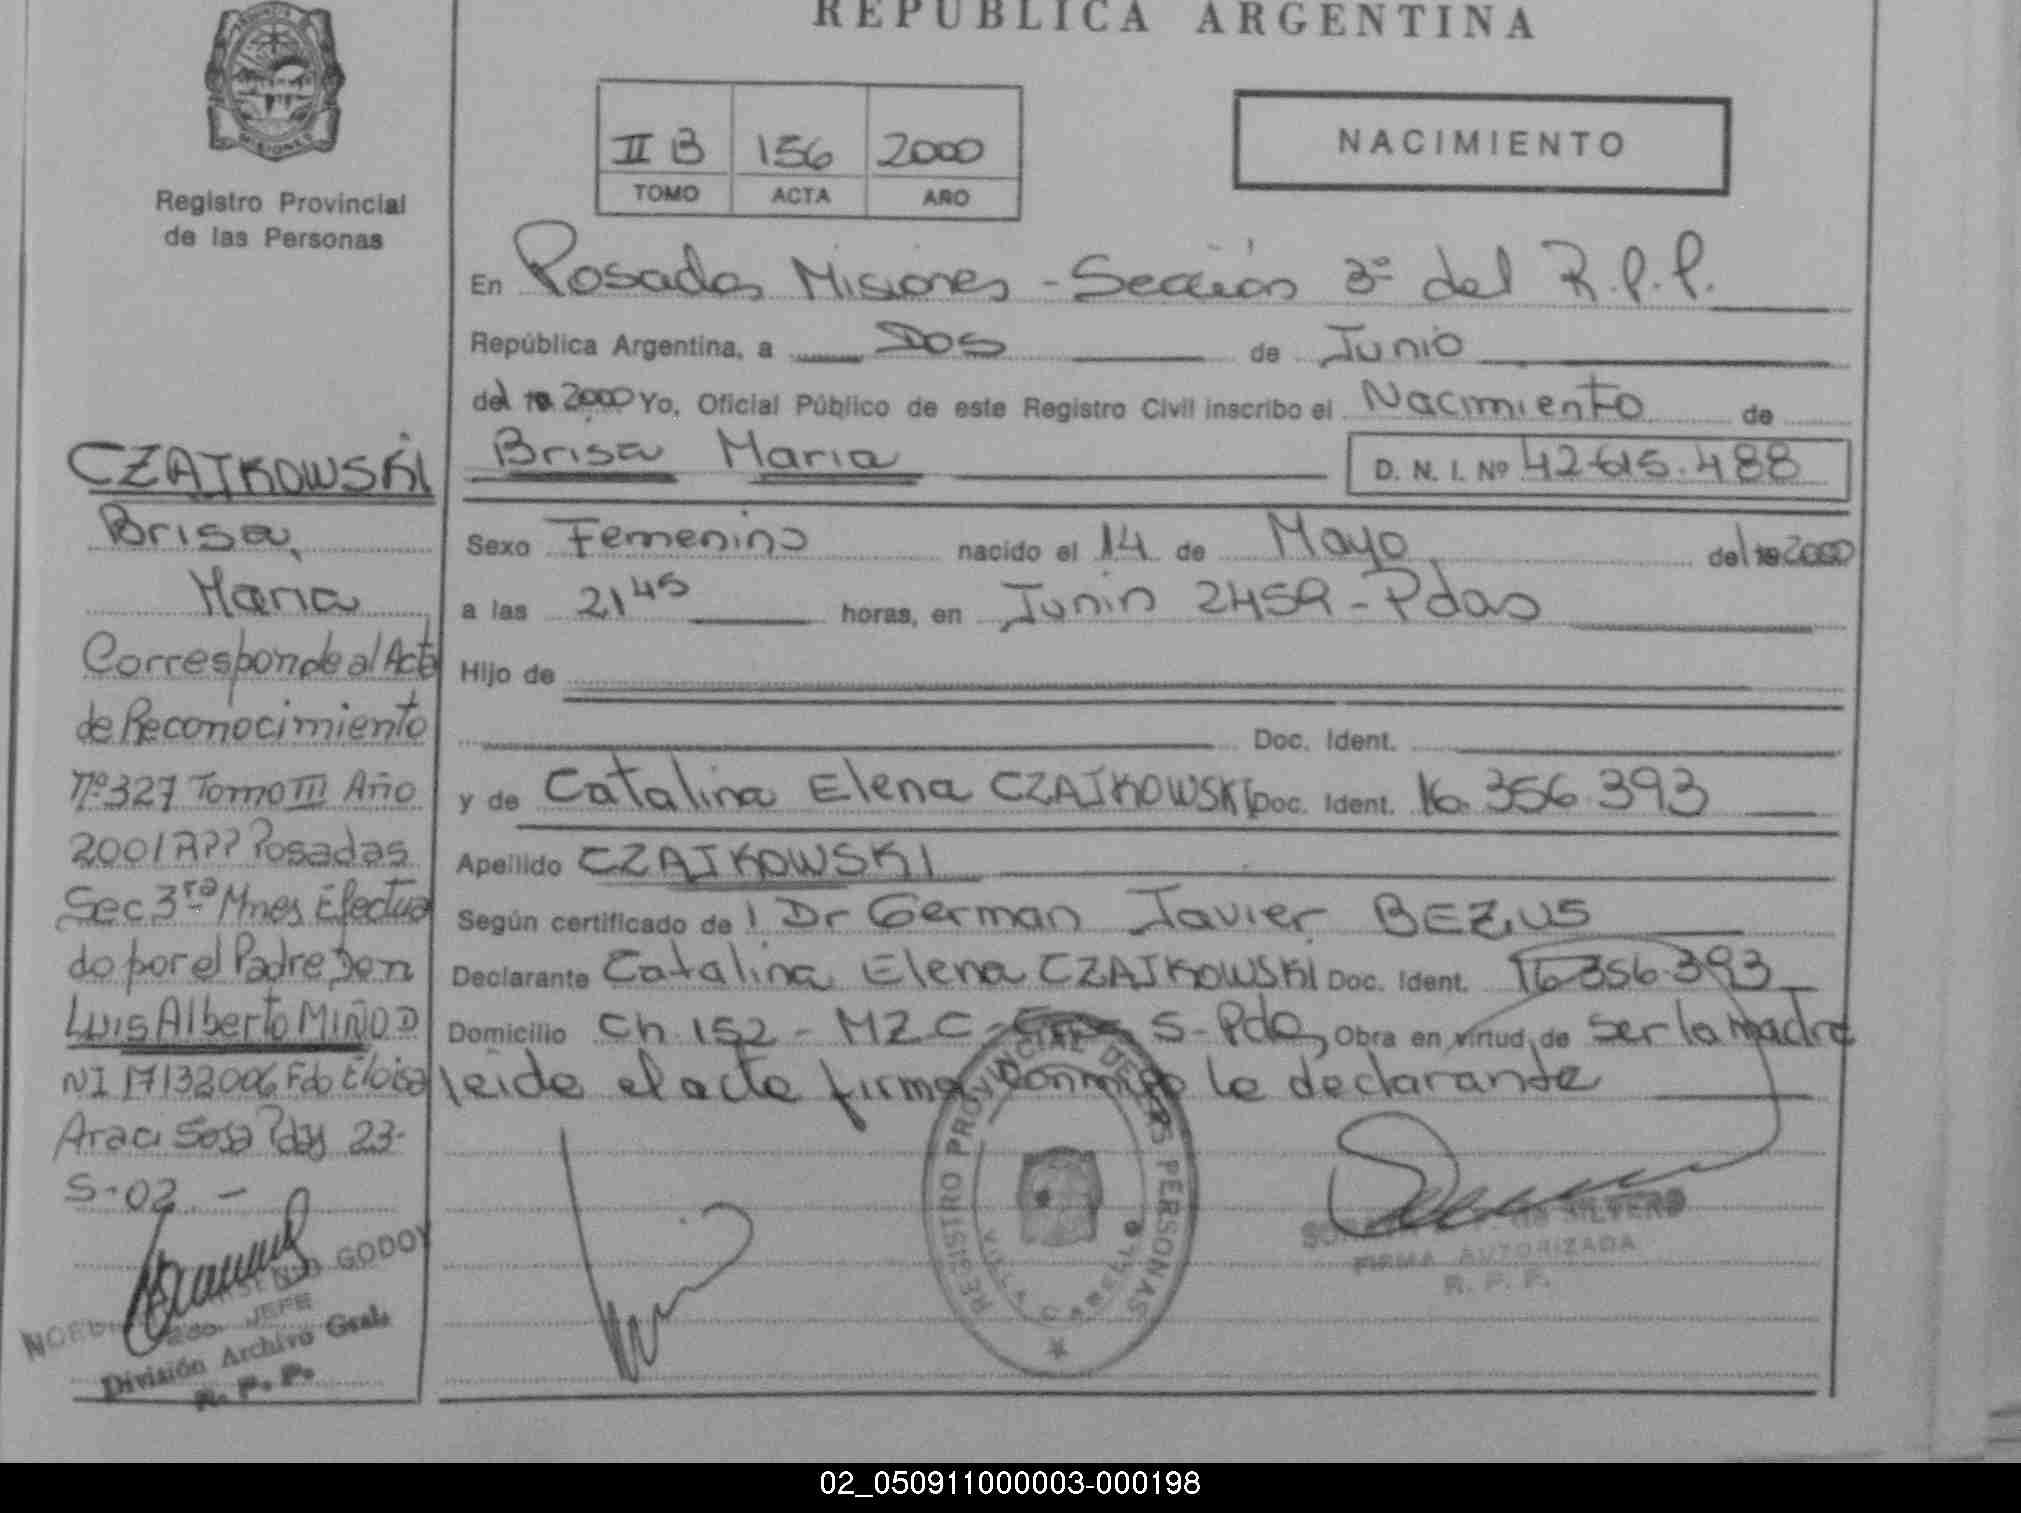 REPUBLICA ARGENTINA
MISIONES
Registro Provincial
de las Personas
II B 156 2000
TOMO ACTA AÑO
NACIMIENTO
En Posadas Misiones - Sección 3ª del R.P.P.
República Argentina, a Dos de Junio
del 2000 Yo, Oficial Público de este Registro Civil inscribo el Nacimiento de
Brisa Maria D. N. I. Nº 42.615.488
Sexo Femenino nacido el 14 de Mayo del 2000
a las 21 45 horas, en Junin 2459 - Pdas
Hijo de
Doc. Ident.
y de Catalina Elena CZAJKOWSKI Doc. Ident. 16.356.393
Apellido CZAJKOWSKI
Según certificado de l Dr German Javier BEZUS
Declarante Catalina Elena CZAJKOWSKI Doc. Ident. 16356.393
Domicilio Ch. 152 - MZ C - S - Pdas Obra en virtud de ser la madre
leida el acta firma conmigo la declarante
CZAJKOWSKI
Brisa,
Maria
Corresponde al Acta
de Reconocimiento
Nº 327 Tomo III Año
2001 RPP Posadas
Sec 3ra Mnes Efectua
do por el Padre Don
Luis Alberto MIÑO D
NI 17132006 Fdo Eloisa
Araci Sosa Pdas 23-
5-02.-
GODOY
JEFE
División Archivo Gral.
R. P. P.
REGISTRO PROVINCIAL DE LAS PERSONAS
VILLA CABELLO
SILVERO
FIRMA AUTORIZADA
R. P. P.
02_050911000003-000198